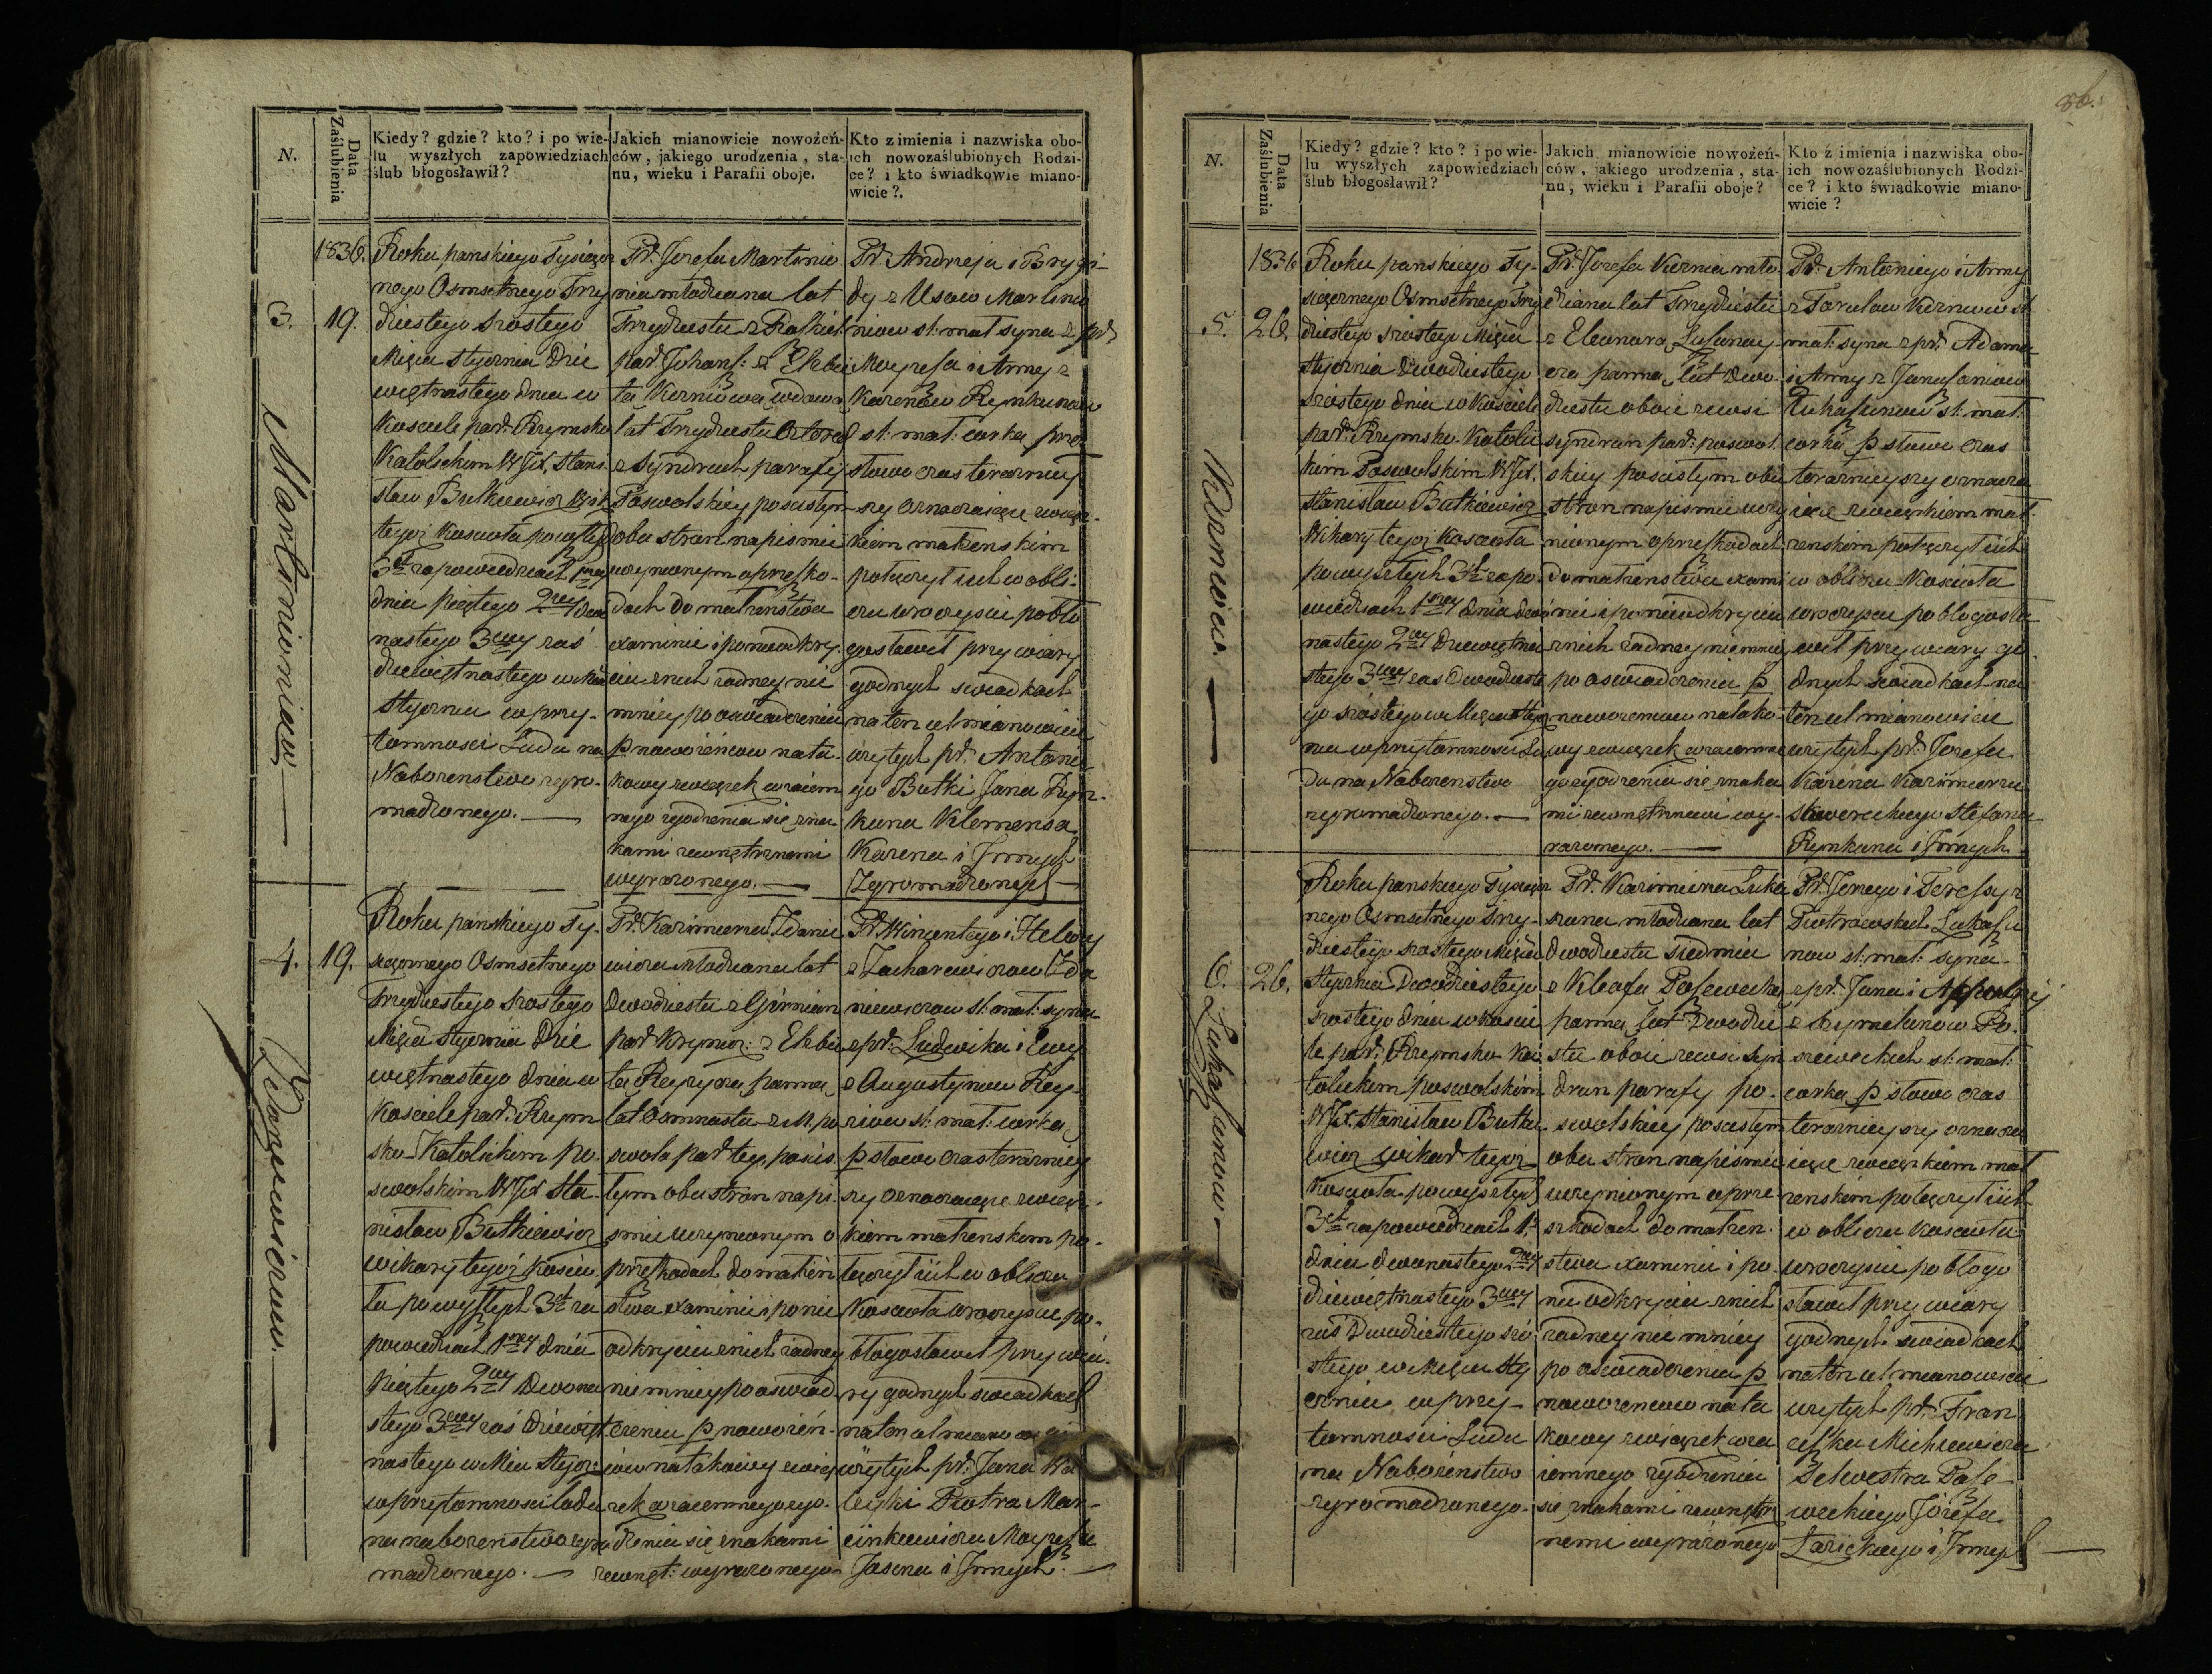 86.
N.
Data Zaślubienia
Kiedy? gdzie? kto? i po wie-
lu wyszłych zapowiedziach
ślub błogosławił?
Jakich mianowicie nowożeń-
ców, jakiego urodzenia, sta-
nu, wieku i Parafii oboje.
Kto z imienia i nazwiska obo-
ich nowozaślubionych Rodzi-
ce? i kto świadkowie miano-
wicie?.
3.
Martinioniaw
1836.
19.
Roku panskiego Tysiącz
nego Osmsetnego Trzy
dziestego szostego
Mięca stycznia Dzie
więtnastego dnia w
Kosciele par. Rzymsko
Katolickim WJX. Stani
sław Butkiewicz Wik.
tegoż Koscioła po wyszłych
3ch zapowiedziach 1wszey
dnia piątego 2giey dwu
nastego 3ciey zaś
dziewiętnastego w Mcu
stycznia w przy-
tomnosci Ludu na
Nabożenstwo zgro-
madzonego.
Pr. Jozefa Martinio
nia młodziana lat
Trzydziestu z Raskiel
par. Johans: z Elzbie
tą Kierniową wdową
lat Trzydziestu Cztered
z Syndriuch parafij
Poswolskiey po scisłym
obu stron na pismie
uczynionym o przeszko-
dach do małżeństwa
examinie i po nieodkry-
ciu z nich żadney nie
mniey po oswiadczeniu
p nowożeńcow na ta-
kowy związek wzaiem
nego zgodzenia się zna
kami zewnętrznemi
wyrazonego.
Pr. Andrzeja i Brygi-
dy z Usow Martinio
niow sl: mał syna z pr.
Moyzesa i Anny z
Karenow Rymkunow
sl: mał: corka prze
słowa czas teraznieÿ
szy oznaczaiące związ-
kiem małżenskim
połączył ich w obli-
czu uroczyscie pobło
gosławił przy wiary
godnych swiadkach
na ten cel mianowicie
użytych pr. Antonie
go Butki Jana Rym-
kuna Klemensa
Karena i Jnnych
Zgromadzonych
4.
Zdaniewiczow.
19.
Roku panskiego Ty-
siącznego Osmsetnego
Trzydziestego szostego
Mięca stycznia Dzie
więtnastego dnia w
Kosciele par. Rzym
sko-Katolickim po
swolskim WJX Sta-
nisław Butkiewicz
wikary tegoż Koscio
ła po wyszłych 3ch za
powiedziach 1wszey dnia
Piątego 2giey Dwuna
stego 3ciey zaś Dziewięt
nastego w Mcu stycz:
w przytomnosci ludu
na nabozenstwo zgro
madzonego.
Pr. Kazimierza Zdanie
wicza młodziana lat
Dwudziestu z Girnian
par Krynicz: z Elzbie
tą Reyzyną panną
lat Osmnastu z M. po
swola par tey, po scis
łym obu stron na pi-
smie uczynionym o
przeszkodach do małżen
stwa examinie i po nie
odkryciu z nich żadney
nie mniey po oswiad-
czeniu p nowożeń-
ców na takowy zwią
zek wzaiemnego zgo-
dzenia się znakami
zewnęt: wyrazonego
Pr. Wincentego i Heleny
z Zacharewiczow Zda
niewiczow sl: mał: syna
z pr. Ludwika i Ewy
z Augustynow Rey-
ziow sl: mał: corka
p słowa czas teraznieÿ
szy oznaczaiące związ-
kiem małżenskim po-
łączył ich w obliczu
Koscioła uroczyscie po-
błogosławił przy wia-
ry godnych swiadkach
na ten cel mianowicie
użytych pr. Jana Wa
leyki Piotra Mar-
cinkiewicza Moyzesza
Jasena i Jnnych.
N.
Data Zaślubienia
Kiedy? gdzie? kto? i po wie-
lu wyszłych zapowiedziach
ślub błogosławił?
Jakich mianowicie nowożeń-
ców, jakiego urodzenia, sta-
nu, wieku i Parafii oboje?
Kto z imienia i nazwiska obo-
ich nowozaślubionych Rodzi-
ce? i kto świadkowie miano-
wicie?
5.
Kierniow.
1836
26.
Roku panskiego Ty-
siącznego Osmsetnego Trzy
dziestego szostego Mięca
stycznia Dwudziestego
szostego dnia w Kosciele
par. Rzymsko-Katolic
kim Poswolskim WJX.
Stanisław Butkiewicz
Wikary tegoż Koscioła
po wyszłych 3ch zapo-
wiedziach 1wszey dnia dwu
nastego 2giey Dziewiętna
stego 3ciey zas Dwudzieste
go szostego w Mięcu stycz
nia w przytomnosci Lu
du na Nabozenstwo
zgromadzonego.
Pr. Jozefa Kiernia mło
dziana lat Trzydziestu
z Eleonorą Łukaszunay
cią panną lat dwu-
dziestu oboie ze wsi
Syndrun par: poswol-
skiey po scisłym obu
stron na pismie uczy
nionym o przeszkodach
do małżenstwa exami
nie i po nieodkryciu
z nich żadney nie mniey
po oswiadczeniu p
nowozencow na tako-
wy związek wzaiemne
go zgodzenia się znaka
mi zewnętrznemi wy-
razonego.
Pr. Antoniego i Anny
z Torulow Kierniow sl
mał: syna z pr. Adama
i Anny z Janusaniow
Łukaszunow sl: mał:
corką p słowa czas
teraznieyszy oznacza
iące związkiem mał
żenskim połączył ich
w obliczu Koscioła
uroczyscie pobłogosła
wił przy wiary go
dnych swiadkach na
ten cel mianowicie
użytych pr. Jozefa
Karena Kazimierza
Skworeckiego Stefana
Rymkuna i Jnnych.
6.
Łukaszunow.
26.
Roku panskiego Tysiącz
nego Osmsetnego Trzy-
dziestego szostego Mięca
Stycznia Dwudziestego
szostego dnia w Koscie
le par. Rzymsko-Ka
tolickim poswolskim
WJX. Stanisław Butkie
wicz wikar tegoż
Koscioła po wyszłych
3ch zapowiedziach 1
dnia dwunastego 2giey
dziewiętnastego 3ciey
zas Dwudziestego szo
stego w Mięcu Sty
cznia w przy-
tomnosci Ludu
na Naboženstwo
zgromadzonego.
Pr. Kazimierza Łuka
szuna młodziana lat
Dwudziestu siedmiu
z Kleofą Paszewecką
panną lat Dwudzie
stu oboie ze wsi Syn
drun parafy po-
swolskiey po scisłym
obu stron na pismie
uczynionym o prze
szkodach do małżen-
stwa examinie i po-
nieodkryciu z nich
żadney nie mniey
po oswiadczeniu p
nowozencow na ta
kowy związek wza
iemnego zgodzenia
się znakami zewnętrz
nemi wyrażonego
Pr. Jerzego i Teressy z
Piotrowskich Łukaszu
now sl: mał: syna
z pr. Jana i Appolonij
z Szymelunow Po-
szeweckich sl: mał:
corką p słowa czas
teraznieyszy oznacza
iące związkiem mał
żenskim połączył ich
w obliczu Koscioła
uroczyscie pobłogo
sławił przy wiary
godnych swiadkach
na ten cel mianowicie
użytych pr. Fran
ciszka Michniewicza
Selwestra Pasze
weckiego Jozefa
Łaŕiękiego i Jnnych